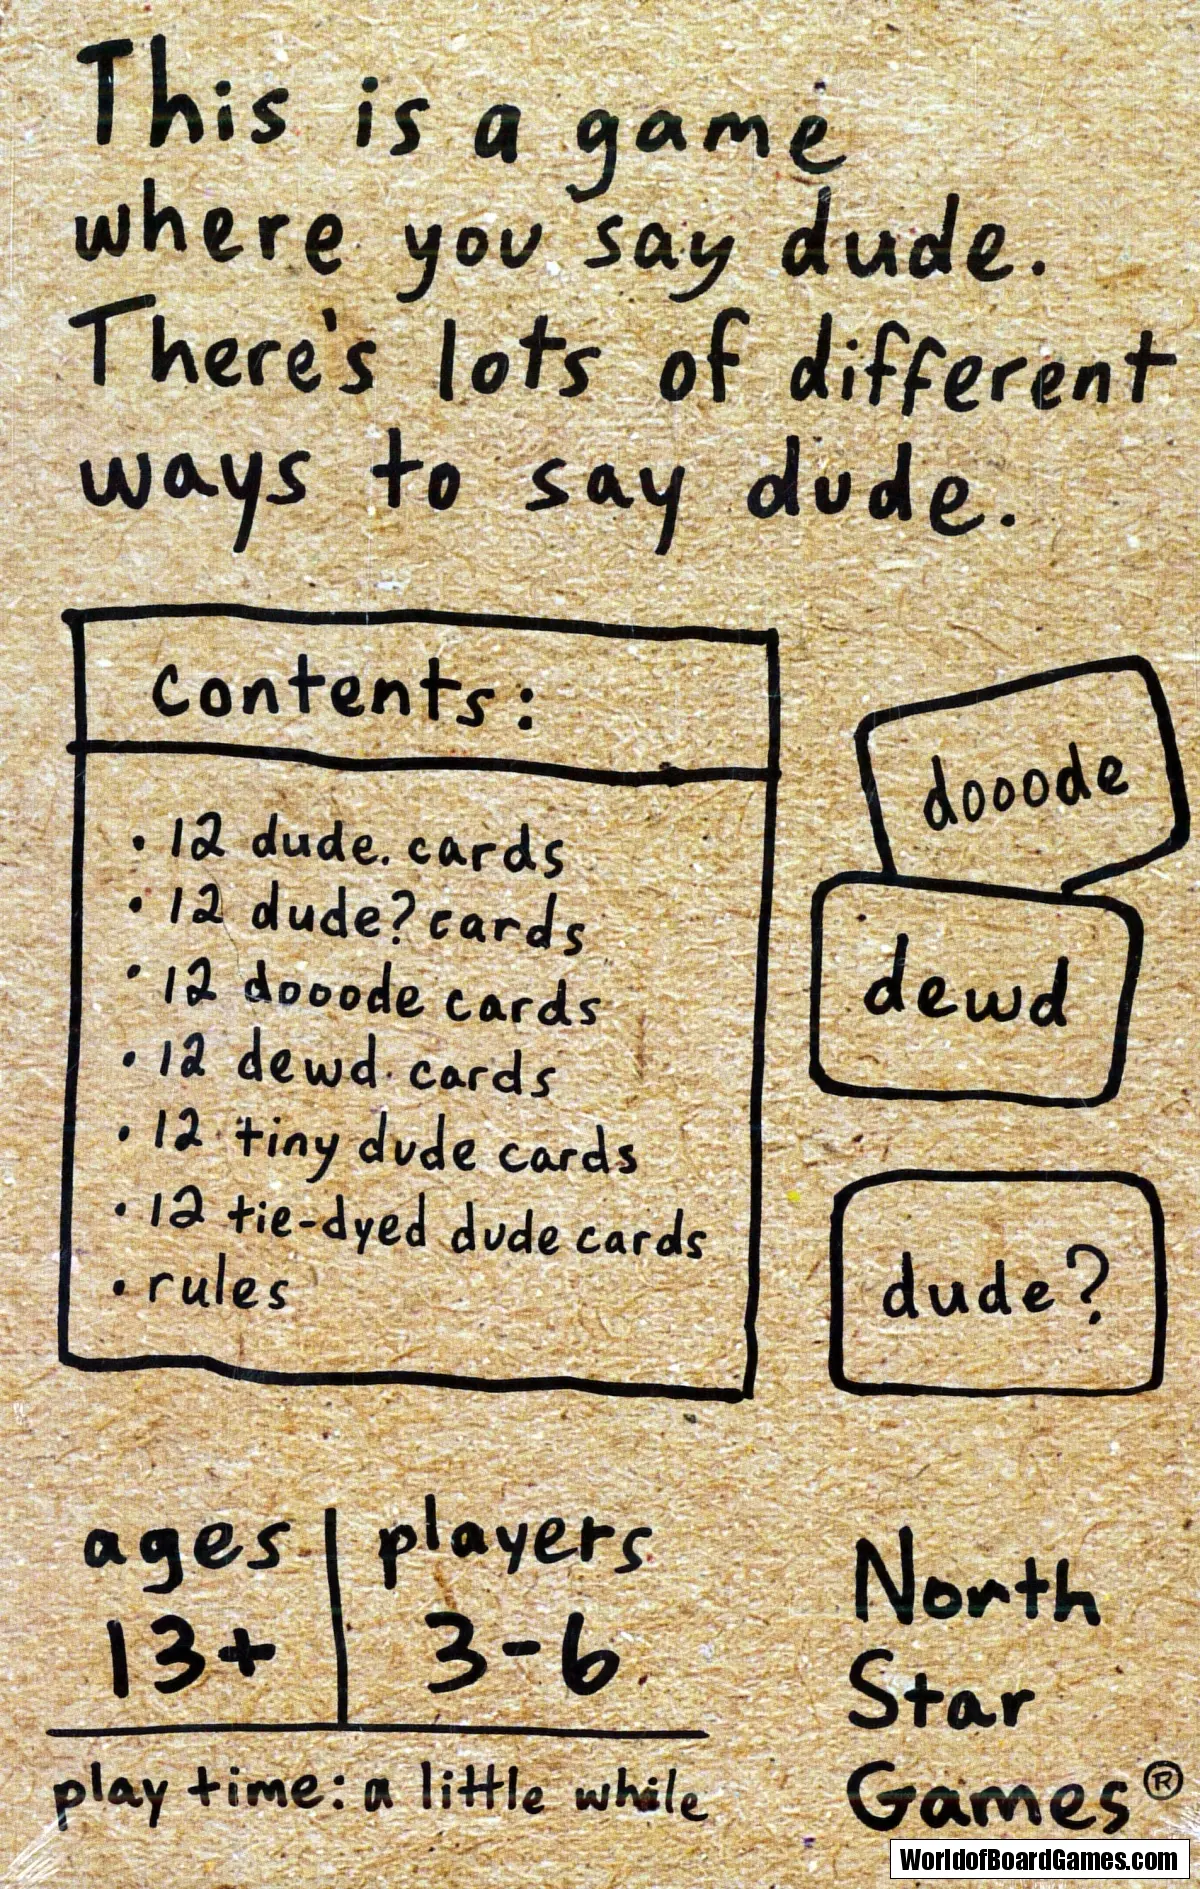 This is a game
where you say dude.
There's lots of different
ways to say dude.
contents:
• 12 dude. cards
• 12 dude? cards
• 12 dooode cards
• 12 dewd cards
• 12 tiny dude cards
• 12 tie-dyed dude cards
• rules
dooode
dewd
dude?
ages
13+
players
3-6
play time: a little while
North
Star
Games®
WorldofBoardGames.com